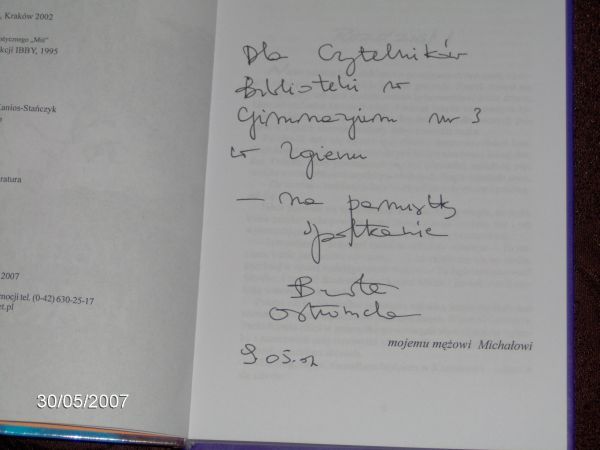 , Kraków 2002
atycznego „Miś”
kcji IBBY, 1995
Kanios-Stańczyk
ratura
2007
mocji tel. (0-42) 630-25-17
et.pl
Dla Czytelników
Biblioteki w
Gimnazjum nr 3
w Zgierzu
— na pamiątkę
spotkania
Beata
Ostrowicka
mojemu mężowi Michałowi
9 05.
30/05/2007